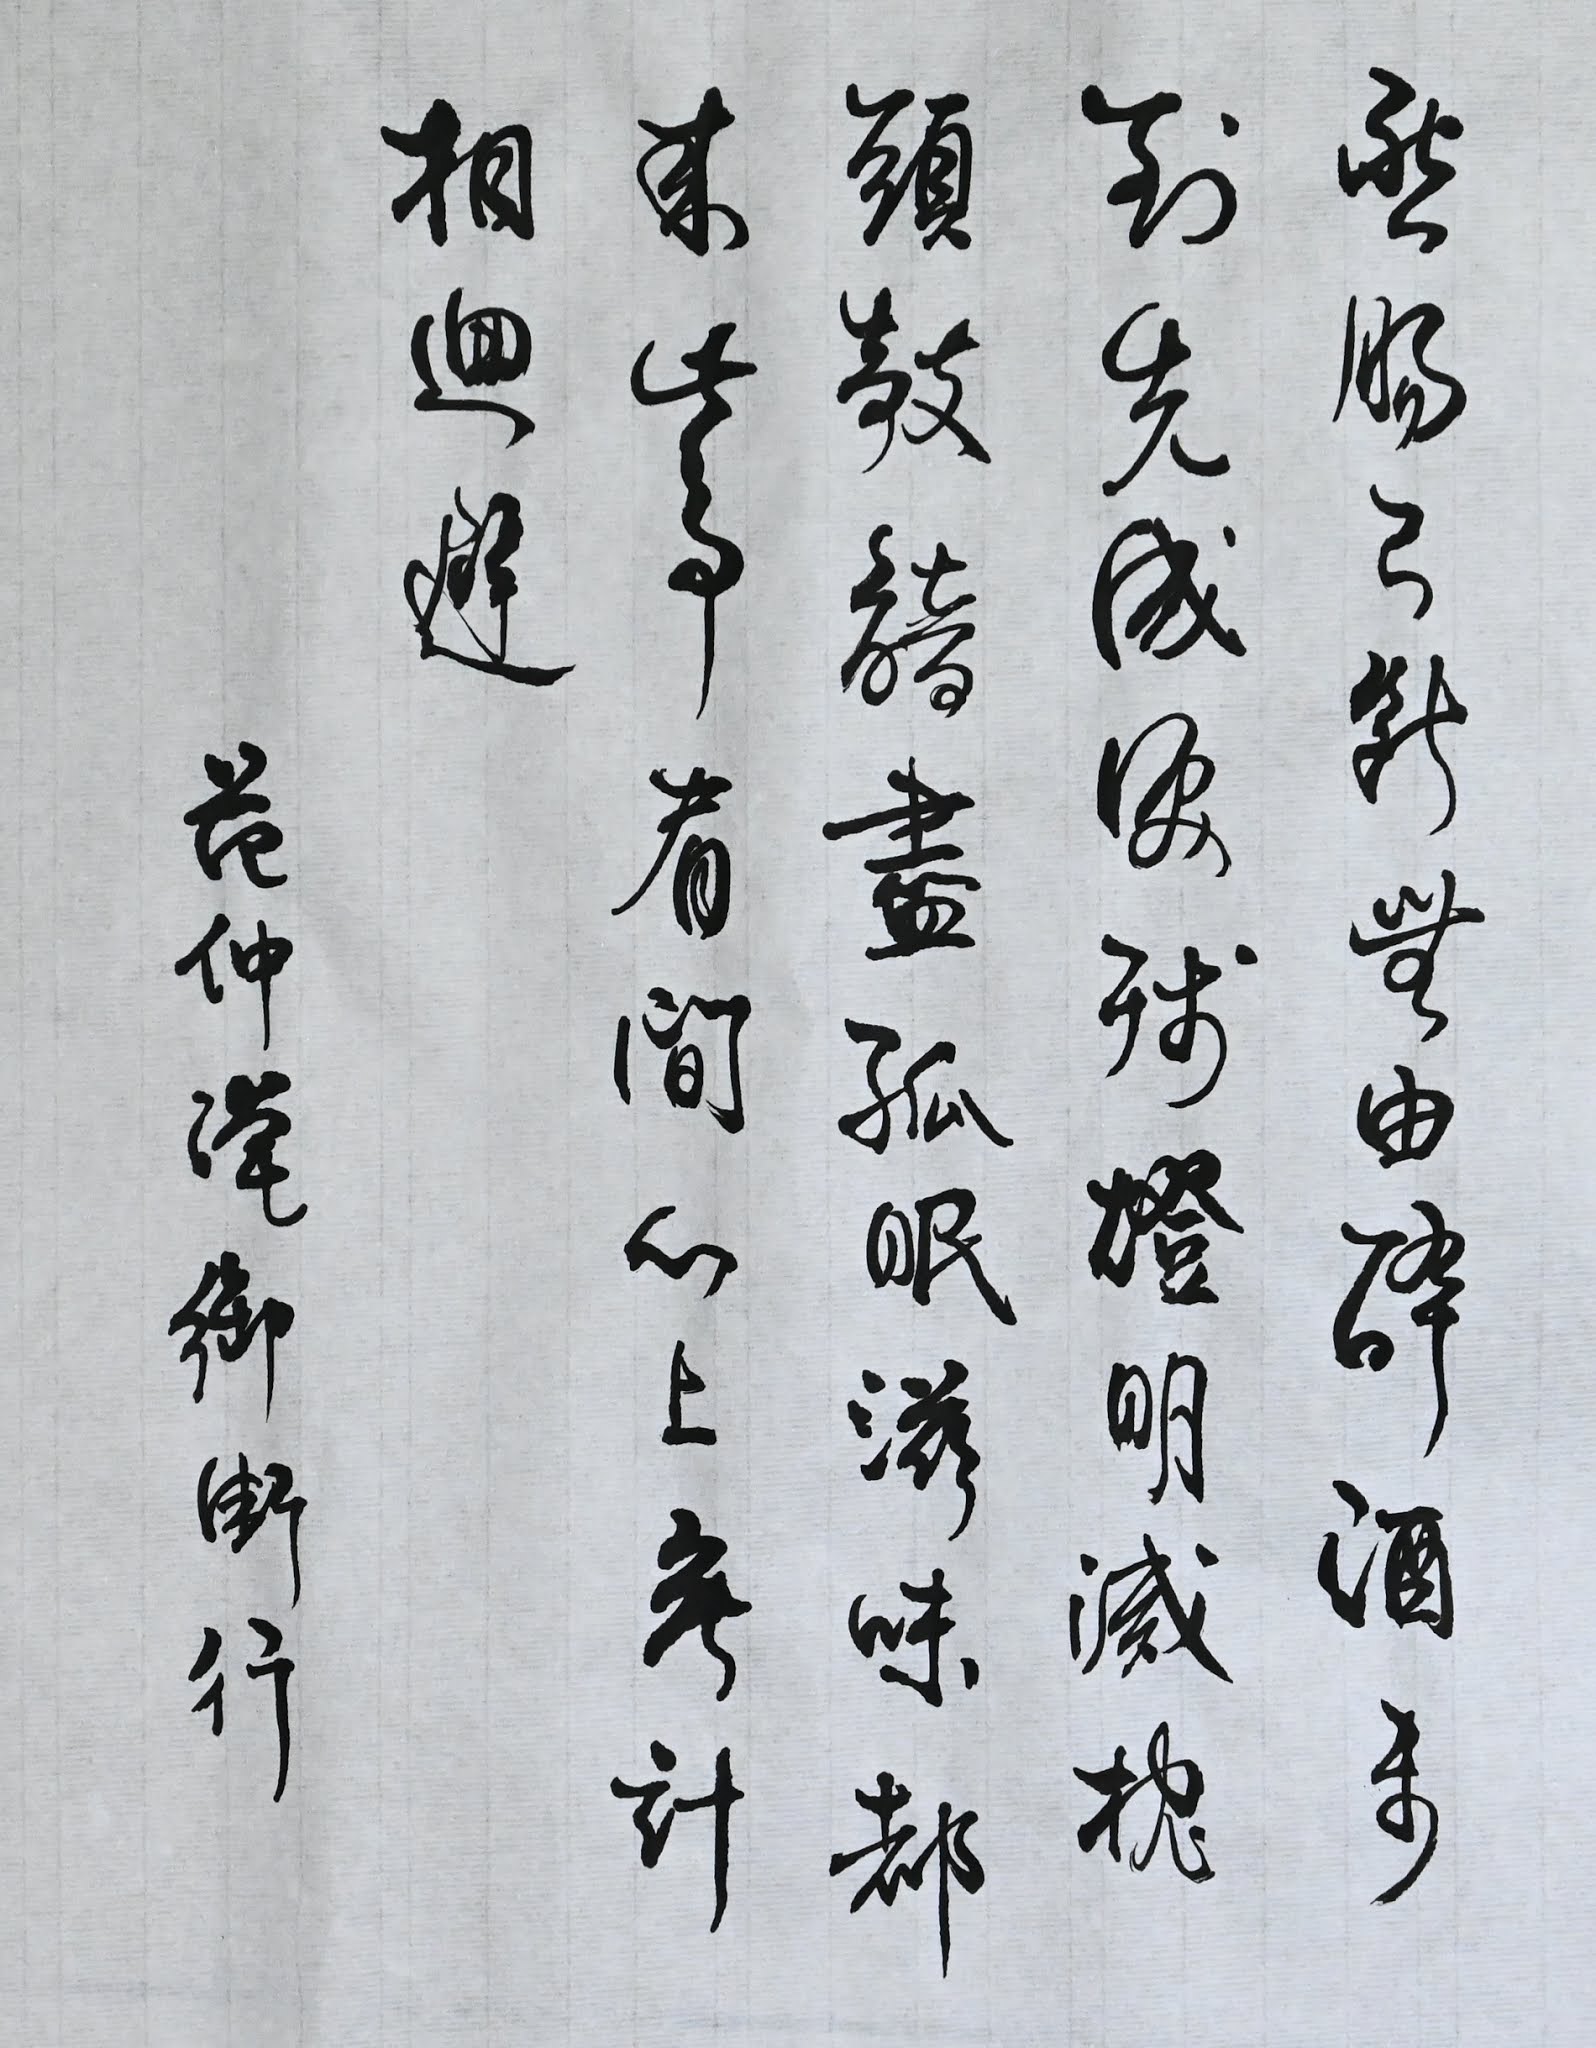 愁腸已斷無由醉酒未
到先成淚殘燈明滅枕
頭攲諳盡孤眠滋味都
來此事眉間心上無計
相迴避
范仲淹御街行